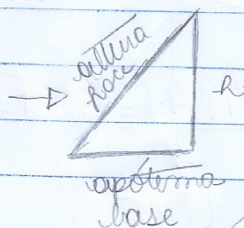 altura
face
h
apótema
base